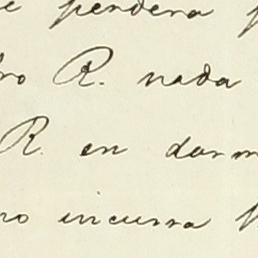 e perdera p
ro R. nada
R. en dar m
no incurra p